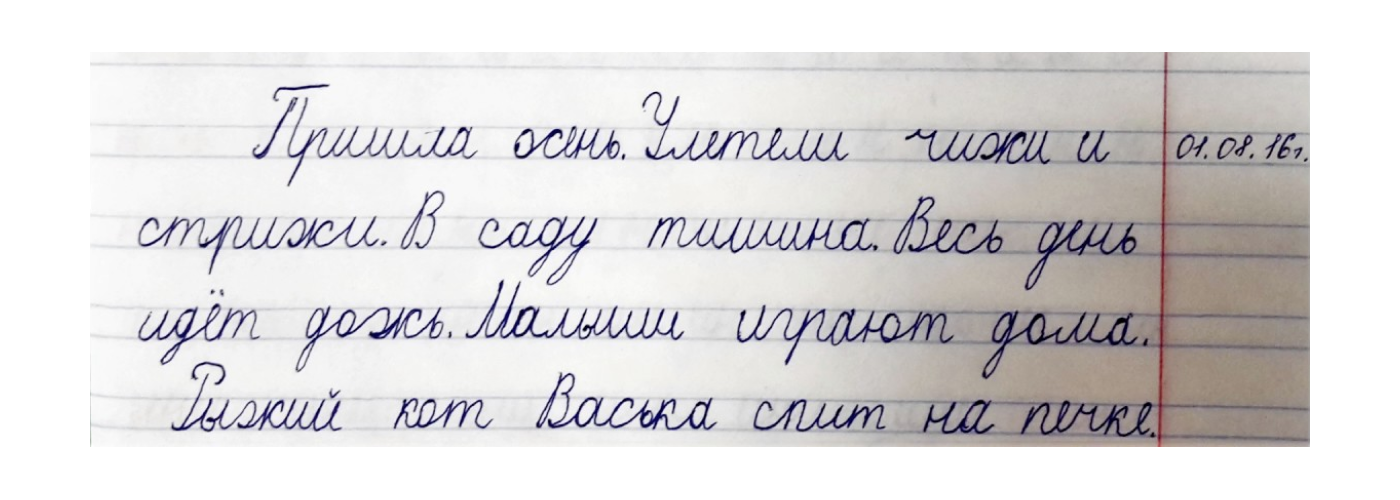 Пришла осень. Улетели чижи и 01.08.16г.
стрижи. В саду тишина. Весь день
идёт дожь. Малыши играют дома.
Рыжий кот Васька спит на печке.